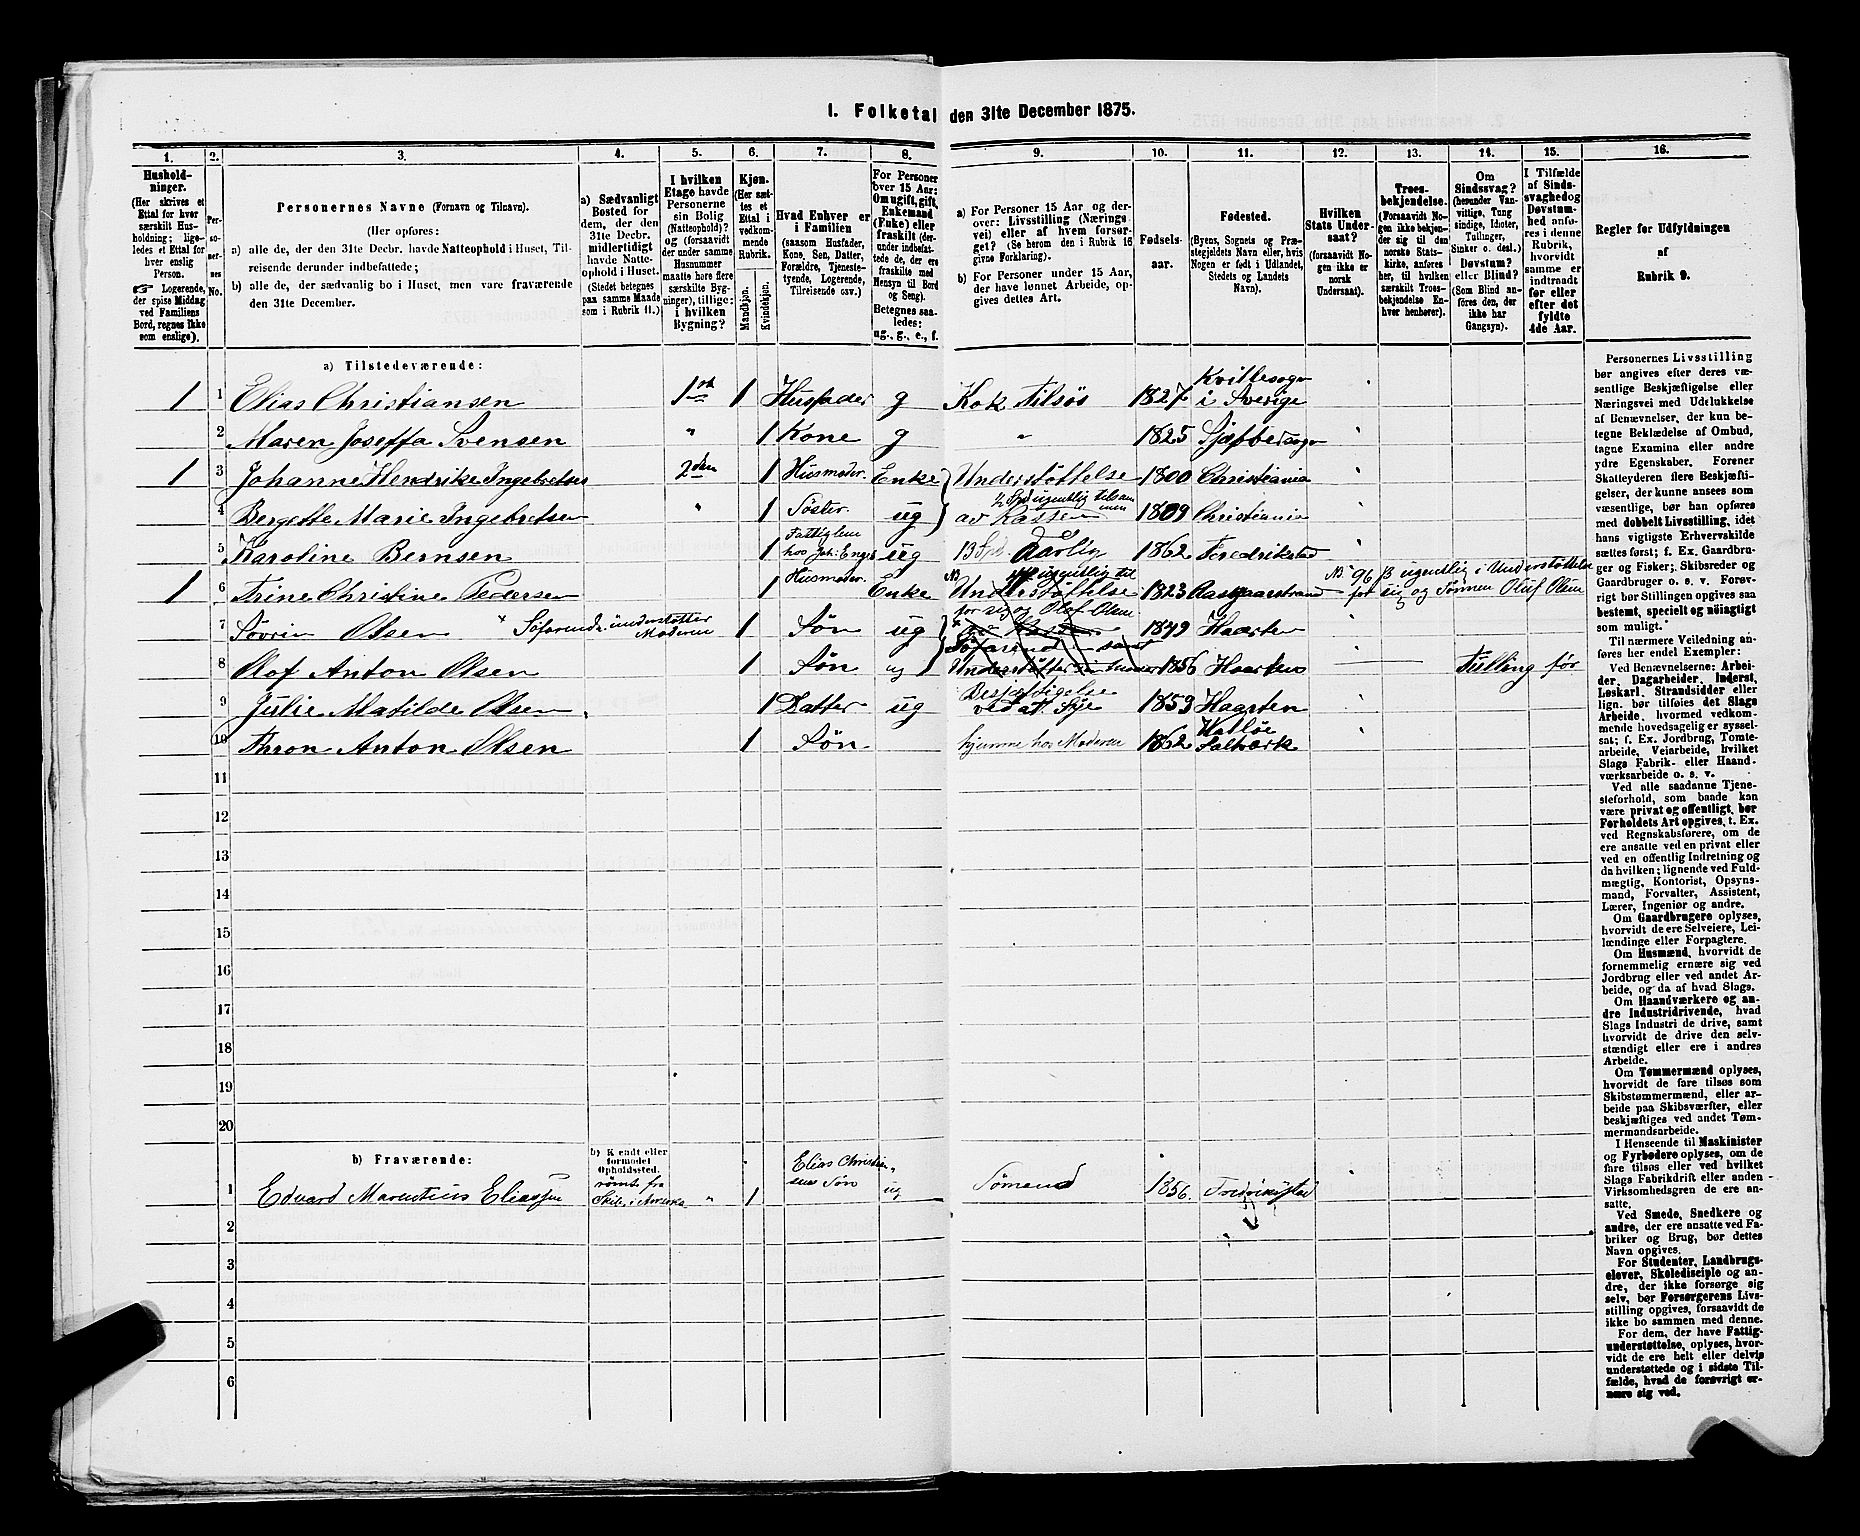 1. Folketal den 31te December 1875.
1. 2. 3. 4. 5. 6. 7. 8. 9. 10. 11. 12. 13. 14. 15. 16.
Hushold-
ninger.
(Her skrives et
Ettal for hver
særskilt Hus-
holdning; lige-
ledes et Ettal for
hver enslig
Person.
☞ Logerende,
der spise Middag
ved Familiens
Bord, regnes ikke
som enslige).
Per-
so-
ner-
nes
No.
Personernes Navne (Fornavn og Tilnavn).
(Her opføres:
a) alle de, der den 31te Decbr. havde Natteophold i Huset, Til-
reisende derunder indbefattede;
b) alle de, der sædvanlig bo i Huset, men vare fraværende
den 31te December.
a) Sædvanligt
Bosted for
dem, der den
31te Decbr.
midlertidigt
havde Natte-
ophold i Huset.
(Stedet betegnes
paa samme Maade
som i Rubrik 11.)
I hvilken
Etage havde
Personerne
sin Bolig
(Natteophold)?
og (forsaavidt
der under samme
Husnummer
maatte høre flere
særskilte Byg-
ninger), tillige:
i hvilken
Bygning?
Kjøn.
(Her sæt-
tes et
Ettal i
vedkom-
mende
Rubrik.
Mandkjøn.
Kvindekjøn.
Hvad Enhver er
i Familien
(saasom Husfader,
Kone, Søn, Datter,
Forældre, Tjeneste-
tyende, Logerende,
Tilreisende osv.)
For Personer
over 15 Aar:
Om ugift, gift,
Enkemand
(Enke) eller
fraskilt (der-
under indbefat-
tede de, der ere
fraskilte med
Hensyn til Bord
og Seng).
Betegnes saa-
ledes:
ug., g., e., f.
a) For Personer 15 Aar og der-
over: Livsstilling (Nærings-
vei) eller af hvem forsør-
get? (Se herom den i Rubrik 16
givne Forklaring).
b) For Personer under 15 Aar,
der have lønnet Arbeide, op-
gives dettes Art.
Fødsels-
aar.
Fødested.
(Byens, Sognets og Præ-
stegjeldets Navn eller, hvis
Nogen er født i Udlandet,
Stedets og Landets
Navn).
Hvilken
Stats Under-
saat?
(forsaavidt No-
gen ikke er
norsk
Undersaat).
Troes-
bekjendelse.
(Forsaavidt No-
gen ikke bekjen-
der sig til den
norske Stats-
kirke, anføres
her, til hvilken
særskilt Troes-
bekjendelse En-
hver henhører).
Om
Sindssvag?
(herunder Van-
vittige, Tung-
sindige, Idioter,
Tullinger,
Sinker o. desl.)
Døvstum?
eller Blind?
(Som Blind an-
føres den, der
ikke har
Gangsyn).
I Tilfælde
af Sinds-
svaghed og
Døvstum-
hed anfø-
res i denne
Rubrik,
hvorvidt
samme er
indtraadt
før eller
efter det
fyldte
4de Aar.
Regler for Udfyldningen
af
Rubrik 9.
a) Tilstedeværende:
1 1 Elias Christiansen 1ste 1 Husfader g Kok tilsøs 1827 Kvillesogn
i Sverige
2 Maren Joseffa Svensen " 1 Kone g " 1825
1 3 Johanne Hendrike Ingebretsen 2den 1 Husmoder. Enke Understøttelse 1800 Christiania
4 Bergette Marie Ingebretsen " 1 Søster. ug ½ Spd ugentlig tilsam
men
av Kassen 1809 Christiania
5 Karoline Bernsen 1 Fattiglem
hos Joh: Engeb ug 13 Spd. Aarlig 1862 Fredrikstad
1 6 Trine Christine Pedersen 1 Husmoder. Enke ugentlig til
Understøttelse
for sig og Olof Olsen 1823 Aasgaarstrand No. 96 ugentlig i Understøttelse
for sig og Sønnen Oluf Olsen
7 Søvrin Olsen × Søfarende. understøtter
Moderen 1 Søn ug 1849 Haarten
8 Olof Anton Olsen 1 Søn ug 1856 Tulling før
9 Julie Matilde Olsen 1 Datter ug Besjæftigelse
ved at Sye 1859 Haarten
10 Anton Olsen 1 Søn hjemme hos Moderen 1862
11
12
13
14
15
16
17
18
19
20
b) Fraværende:
b) Kjendt eller
formodet
Opholdssted.
1 Edvard Marentius Eliassen rømt fra
Skib. i Amerika " 1 Elias Christian-
sens Søn ug Sømand 1856. Fredrikstad
2
3
4
5
6
Personernes Livsstilling
bør angives efter deres væ-
sentlige Beskjæftigelse eller
Næringsvei med Udelukkelse
af Benævnelser, der kun be-
tegne Beklædelse af Ombud,
tagne Examina eller andre
ydre Egenskaber. Forener
Skatteyderen flere Beskjæfti-
gelser, der kunne ansees som
væsentlige, bør han opføres
med dobbelt Livsstilling, idet
hans vigtigste Erhvervskilde
sættes først; f. Ex. Gaardbru-
ger og Fisker; Skibsreder og
Gaardbruger o. s. v. Forøv-
rigt bør Stillingen opgives saa
bestemt, specielt og nøiagtigt
som muligt.
Til nærmere Veiledning an-
føres her endel Exempler:
Ved Benævnelserne: Arbei-
der, Dagarbeider, Inderst,
Løskarl, Strandsidder eller
lign. bør tilføies det Slags
Arbeide, hvormed vedkom-
mende hovedsagelig er syssel-
sat; f. Ex. Jordbrug, Tomte-
arbeide, Veiarbeide, hvilket
Slags Fabrik- eller Haand-
værksarbeide o. s. v.
Ved alle saadanne Tjene-
steforhold, som baade kan
være privat og offentligt, bør
Forholdets Art opgives, t. Ex.
ved Regnskabsførere, om de
ere ansatte ved en privat eller
ved en offentlig Indretning og
da hvilken; lignende ved Fuld-
mægtig, Kontorist, Opsyns-
mand, Forvalter, Assistent,
Lærer, Ingeniør og andre.
Om Gaardbrugere oplyses,
hvorvidt de ere Selveiere, Lei-
lændinge eller Forpagtere.
Om Husmænd, hvorvidt de
fornemmelig ernære sig ved
Jordbrug eller ved andet Ar-
beide, og da af hvad Slags.
Om Haandværkere og an-
dre Industridrivende, hvad
Slags Industri de drive, samt
hvorvidt de drive den selv-
stændigt eller ere i andres
Arbeide.
Om Tømmermænd oplyses,
hvorvidt de fare tilsøs som
Skibstømmermænd, eller ar-
beide paa Skibsværfter, eller
beskjæftiges ved andet Tøm-
mermandsarbeide.
I Henseende til Maskinister
og Fyrbødere oplyses, om de
fare tilsøs eller ved hvilket
Slags Fabrikdrift eller anden
Virksomhedsgren de ere an-
satte.
Ved Smede, Snedkere og
andre, der ere ansatte ved Fa-
briker og Brug, bør dettes
Navn opgives.
For Studenter, Landbrugs-
elever, Skoledisciple og an-
dre, der ikke forsørge sig
selv, bør Forsørgerens Livs-
stilling opgives, forsaavidt de
ikke bo sammen med denne.
For dem, der have Fattig-
understøttelse, oplyses, hvor-
vidt de ere helt eller delvis
understøttede og i sidste Til-
fælde, hvad de forøvrigt er-
nære sig ved.